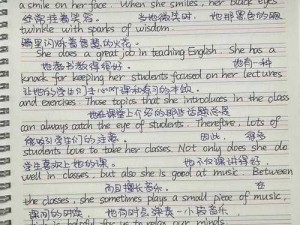 a smile on her face. When she smiles, her black eyes
经常挂着笑容。 当她微笑时, 她那黑色的眼
twinkle with sparks of wisdom.
睛里闪烁着智慧的火花。
She does a great job in teaching English. She has a
她 教得很好。 她有一种
knack for keeping her students focused on her lectures
让他的学生们
and exercises. Those topics that she introduces in the class
她在课堂上介绍的那些话题总是
can always catch the eye of students. Therefore, lots of
能够吸引学生们的注意。 因此, 很多
students love to take her classes. Not only does she do
学生喜欢上她的课。 她不仅课讲得好
well in classes, but also she is good at music. Between
而且擅长音乐。 在
the classes, she sometimes plays a small piece of music,
课间的时候, 她有时会弹奏一小段音乐,
helpful for us to relax